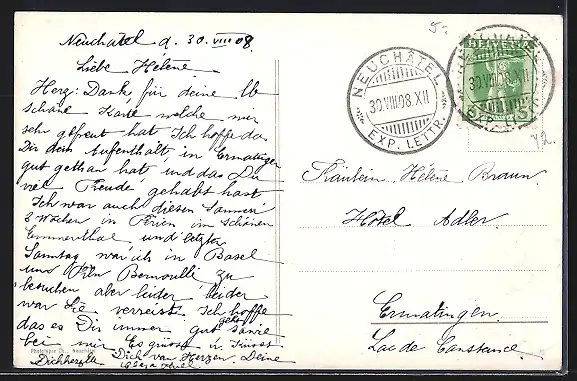 Neuchatel d. 30. VIII 08
Liebe Helene
Herz. Dank für deine lb
schöne Karte welche mir
sehr gefreut hat. Ich hoffe das
Dir dein Aufenthalt in Ermatingen
gut gethan hat und das Du
viel Freude gehabt hast
Ich war auch diesen Sommer
3 Wochen in Ferien im schönen
Emmenthal und letzten
Sonntag war ich in Basel
und Bernoulli zu
besuchen aber leider leider
war Sie verreist. Ich hoffe
das es Dir immer gut geht sowie
bei mir Es grüsst u. küsst
Dich herzl. Dich von Herzen Deine
NEUCHÂTEL
30.VIII.08.XII
EXP. LETTR.
HELVETIA
30.VIII.08.XII
5
Fräulein Helene Braun
Hôtel Adler
Ermatingen
Lac de Constance